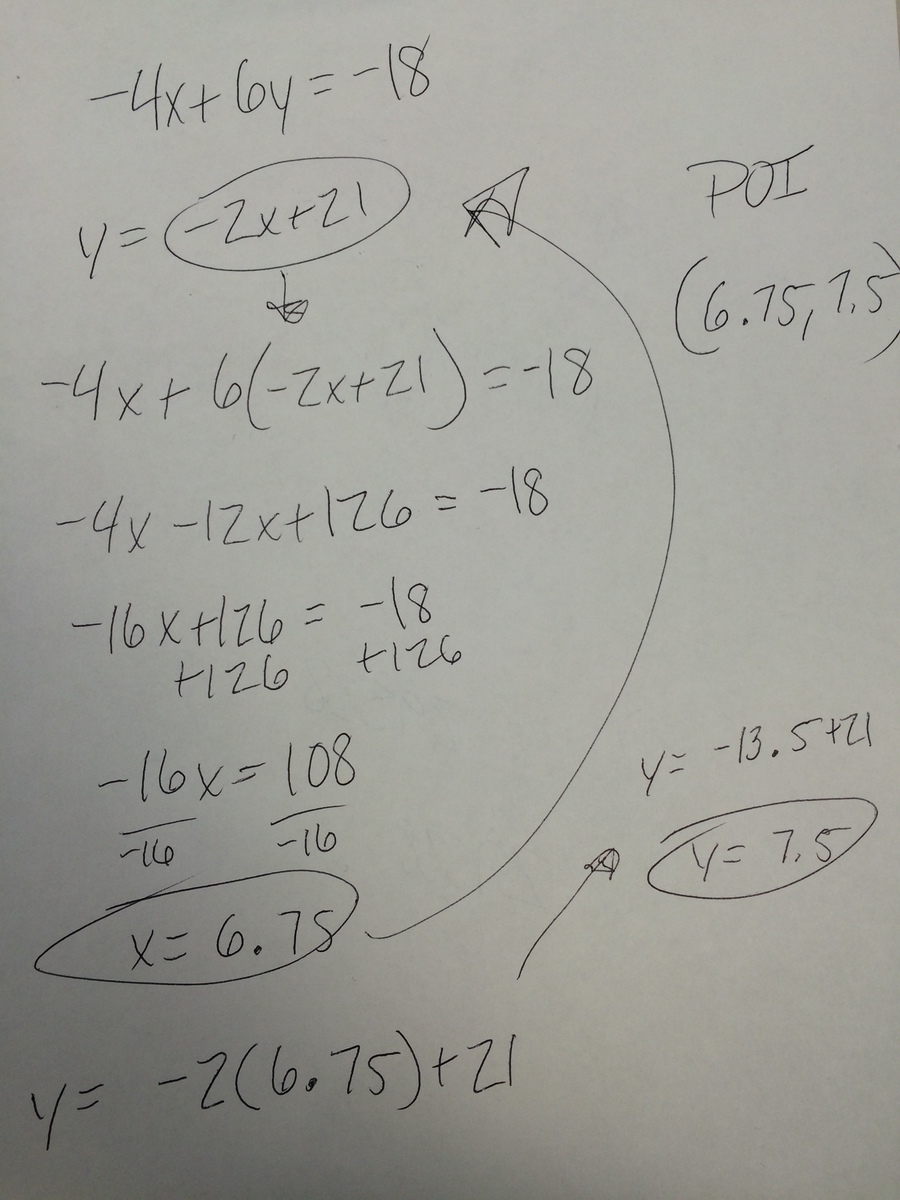 -4x+6y=-18
y= -2x+21
-4x+6(-2x+21)=-18
-4x-12x+126=-18
-16x+126= -18
+126 +126
-16x=108
-16 -16
x=6.75
y= -2(6.75)+21
y= -13.5+21
y= 7.5
POI
(6.75,7.5)